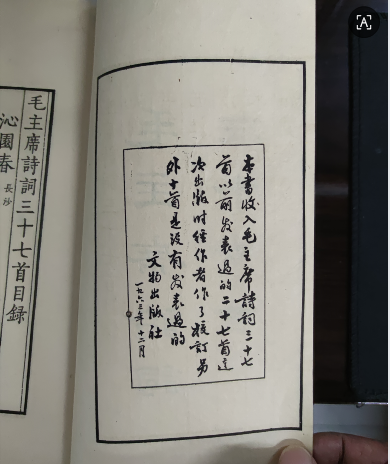 本書收入毛主席詩詞三十七
首以前发表過的二十七首這
次出版时經作者作了校訂另
外十首是沒有发表過的
文物出版社
一九六三年十二月
毛主席詩詞三十七首目録
沁園春 長沙